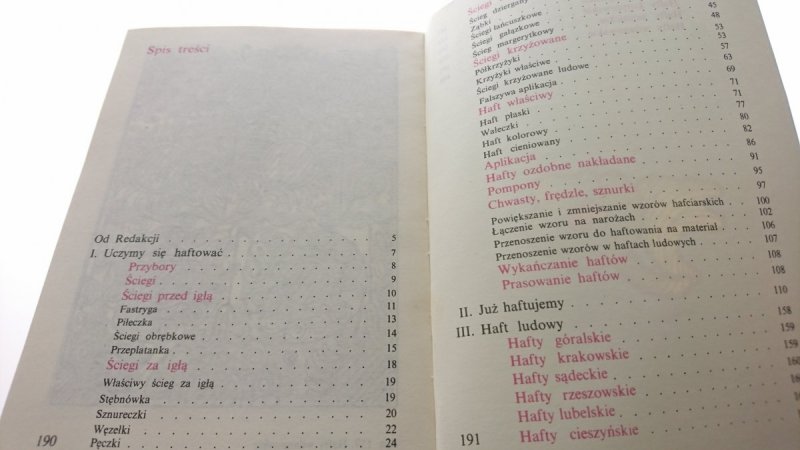 Spis treści
Od Redakcji . . . 5
I. Uczymy się haftować . . . 7
Przybory . . . 8
Ściegi . . . 9
Ściegi przed igłą . . . 10
Fastryga . . . 11
Piłeczka . . . 13
Ściegi obrębkowe . . . 14
Przeplatanka . . . 15
Ściegi za igłą . . . 18
Właściwy ścieg za igłą . . . 19
Stębnówka . . . 19
Sznureczki . . . 20
Węzełki . . . 22
Pęczki . . . 24
190
Ściegi
Ścieg dziergany
Ząbki
Ściegi łańcuszkowe
Ściegi gałązkowe . . . 45
Ścieg margerytkowy . . . 48
Ściegi krzyżowane . . . 53
Półkrzyżyki . . . 53
Krzyżyki właściwe . . . 57
Ściegi krzyżowane ludowe . . . 63
Fałszywa aplikacja . . . 69
Haft właściwy . . . 71
Haft płaski . . . 71
Wałeczki . . . 77
Haft kolorowy . . . 80
Haft cieniowany . . . 82
Aplikacja . . . 86
Hafty ozdobne nakładane . . . 91
Pompony . . . 95
Chwasty, frędzle, sznurki . . . 97
Powiększanie i zmniejszanie wzorów hafciarskich . . . 100
Łączenie wzoru na narożach . . . 102
Przenoszenie wzoru do haftowania na materiał . . . 106
Przenoszenie wzorów w haftach ludowych . . . 107
Wykańczanie haftów . . . 108
Prasowanie haftów . . . 108
II. Już haftujemy . . . 110
III. Haft ludowy . . . 158
Hafty góralskie . . . 159
Hafty krakowskie . . . 159
Hafty sądeckie . . . 159
Hafty rzeszowskie
Hafty lubelskie
Hafty cieszyńskie
191